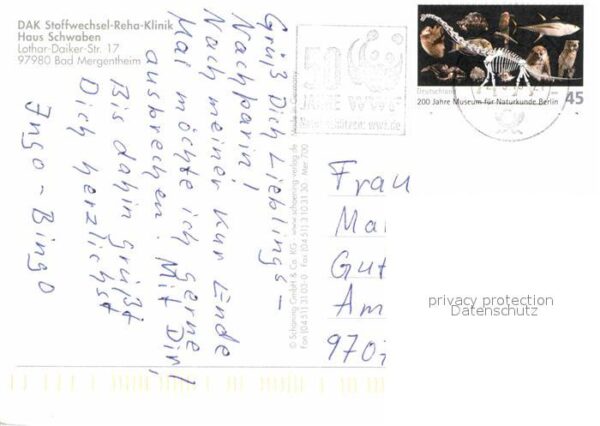 DAK Stoffwechsel-Reha-Klinik
Haus Schwaben
Lothar-Daiker-Str. 17
97980 Bad Mergentheim
Grüß Dich Lieblings-
Nachbarin!
Nach meiner Kur Ende
Mai möchte ich gerne
ausbrechen. Mit Dir!
Bis dahin grüßt
Dich herzlichst
Ingo-Bingo
© Schöning GmbH & Co. KG · www.schoening-verlag.de · Made in Germany
Fon (04 51) 3 10 3-0 · Fax (04 51) 3 10 31 30 Mer 700
50
JAHRE WWF
wwf.de
Deutschland
200 Jahre Museum für Naturkunde Berlin
45
Frau
Mai
Gut
Am
970
privacy protection
Datenschutz